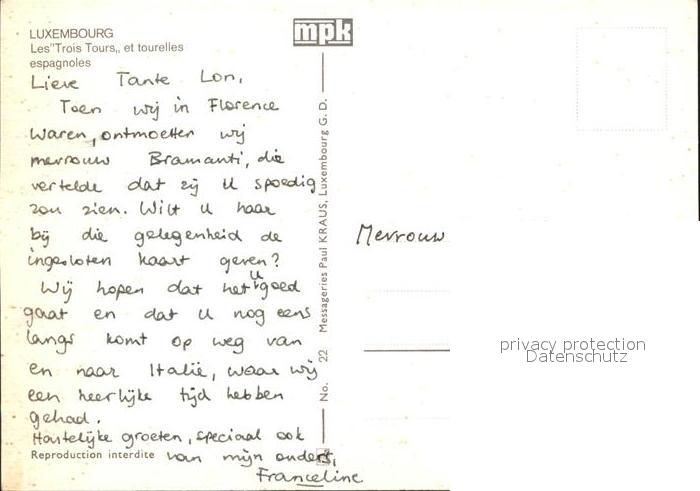 LUXEMBOURG
Les"Trois Tours„ et tourelles
espagnoles
mpk
Lieve Tante Lon,
Toen wij in Florence
waren, ontmoetten wij
mevrouw Bramanti, die
vertelde dat zij U spoedig
zou zien. Wilt U haar
bij die gelegenheid de
ingesloten kaart geven?
Wij hopen dat het U goed
gaat en dat U nog eens
langs komt op weg van
en naar Italië, waar wij
een heerlijke tijd hebben
gehad.
Hartelijke groeten, speciaal ook
Reproduction interdite van mijn ouders,
Franceline
No. 22 Messageries Paul KRAUS, Luxembourg G. D.
Mevrouw
privacy protection
Datenschutz